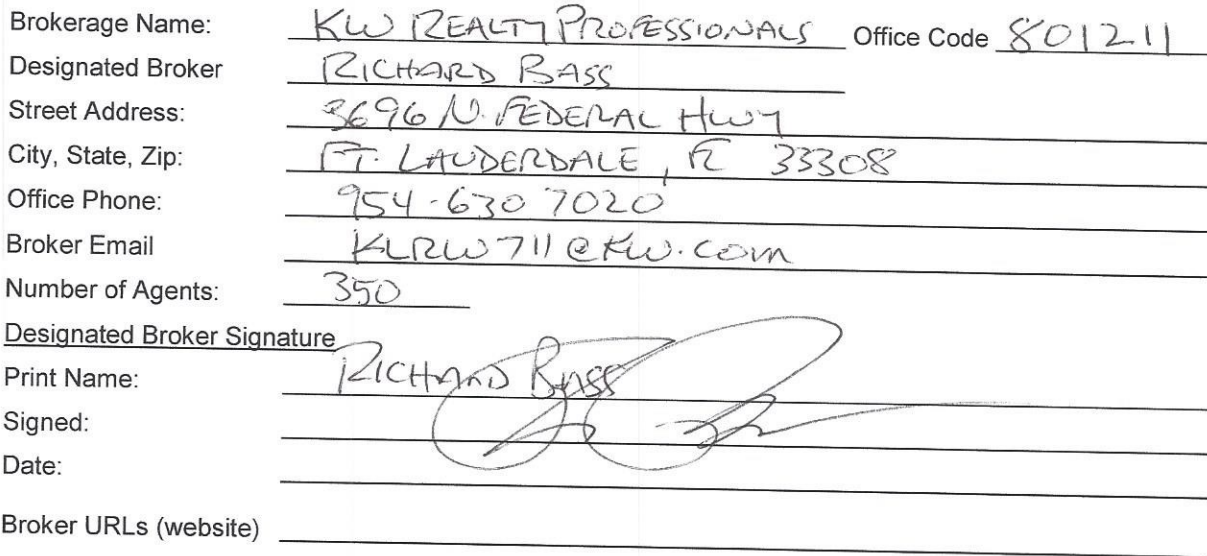 Brokerage Name: KW REALTY PROFESSIONALS Office Code 801211
Designated Broker RICHARD BASS
Street Address: 3696 N. FEDERAL HWY
City, State, Zip: FT. LAUDERDALE, FL 33308
Office Phone: 954-630 7020
Broker Email KLRW711@KW.COM
Number of Agents: 350
Designated Broker Signature
Print Name: RICHARD BASS
Signed:
Date:
Broker URLs (website)